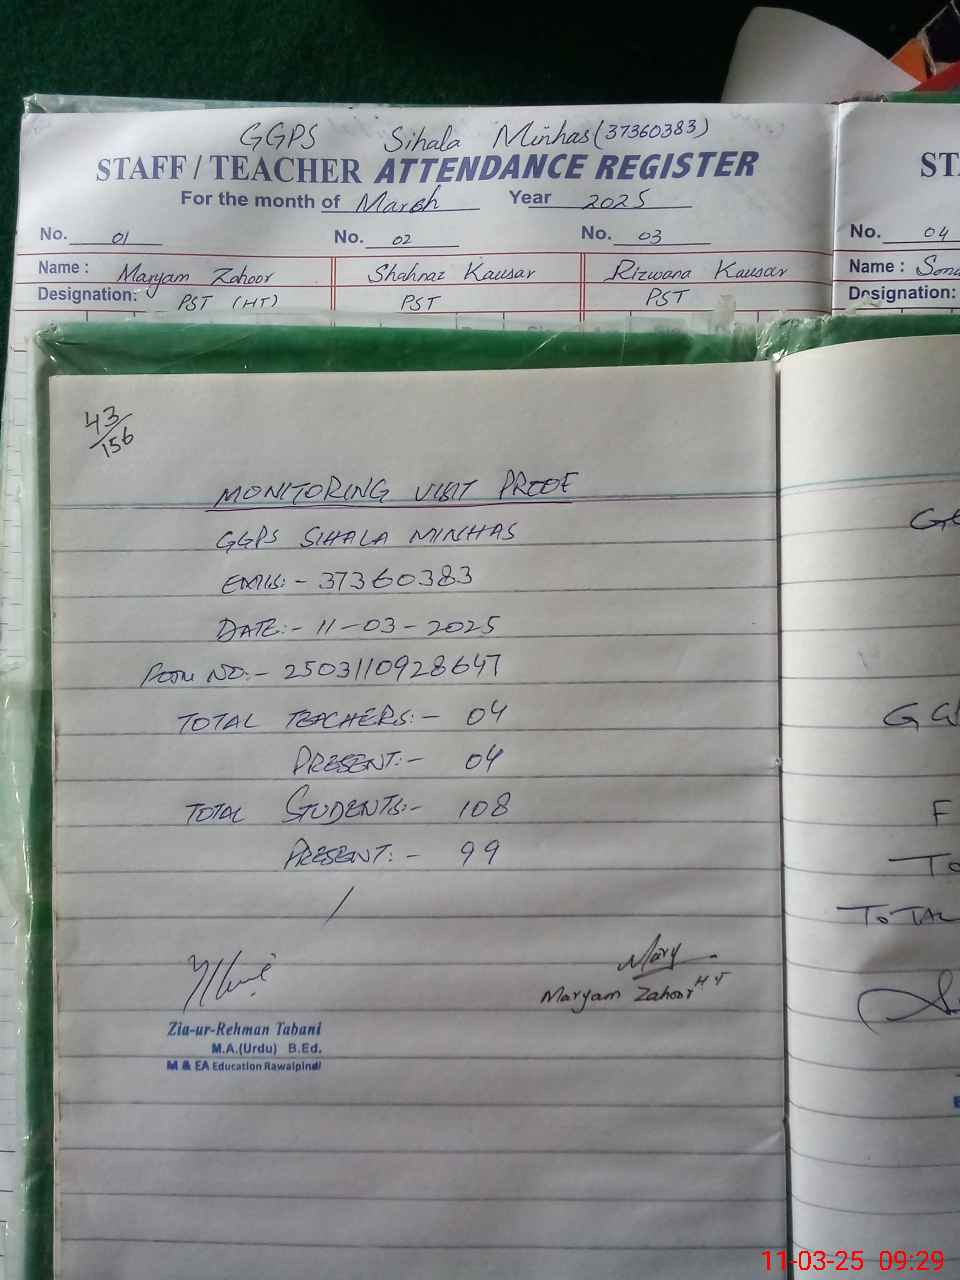 GGPS Sihala Minhas (37360383)
STAFF / TEACHER ATTENDANCE REGISTER
For the month of March Year 2025
No. 01 No. 02 No. 03 No. 04
Name : Maryam Zahoor Shahnaz Kausar Rizwana Kausar Name :
Designation: PST (HT) PST PST Designation:
43/156
MONITORING VISIT PROOF
GGPS SIHALA MINHAS
EMIS:- 37360383
DATE:- 11-03-2025
FORM NO:- 2503110928647
TOTAL TEACHERS:- 04
PRESENT:- 04
TOTAL STUDENTS:- 108
PRESENT:- 99
Mary
Maryam Zahoor HT
Zia-ur-Rehman Tabani
M.A.(Urdu) B.Ed.
M & EA Education Rawalpindi
TOTAL
11-03-25 09:29